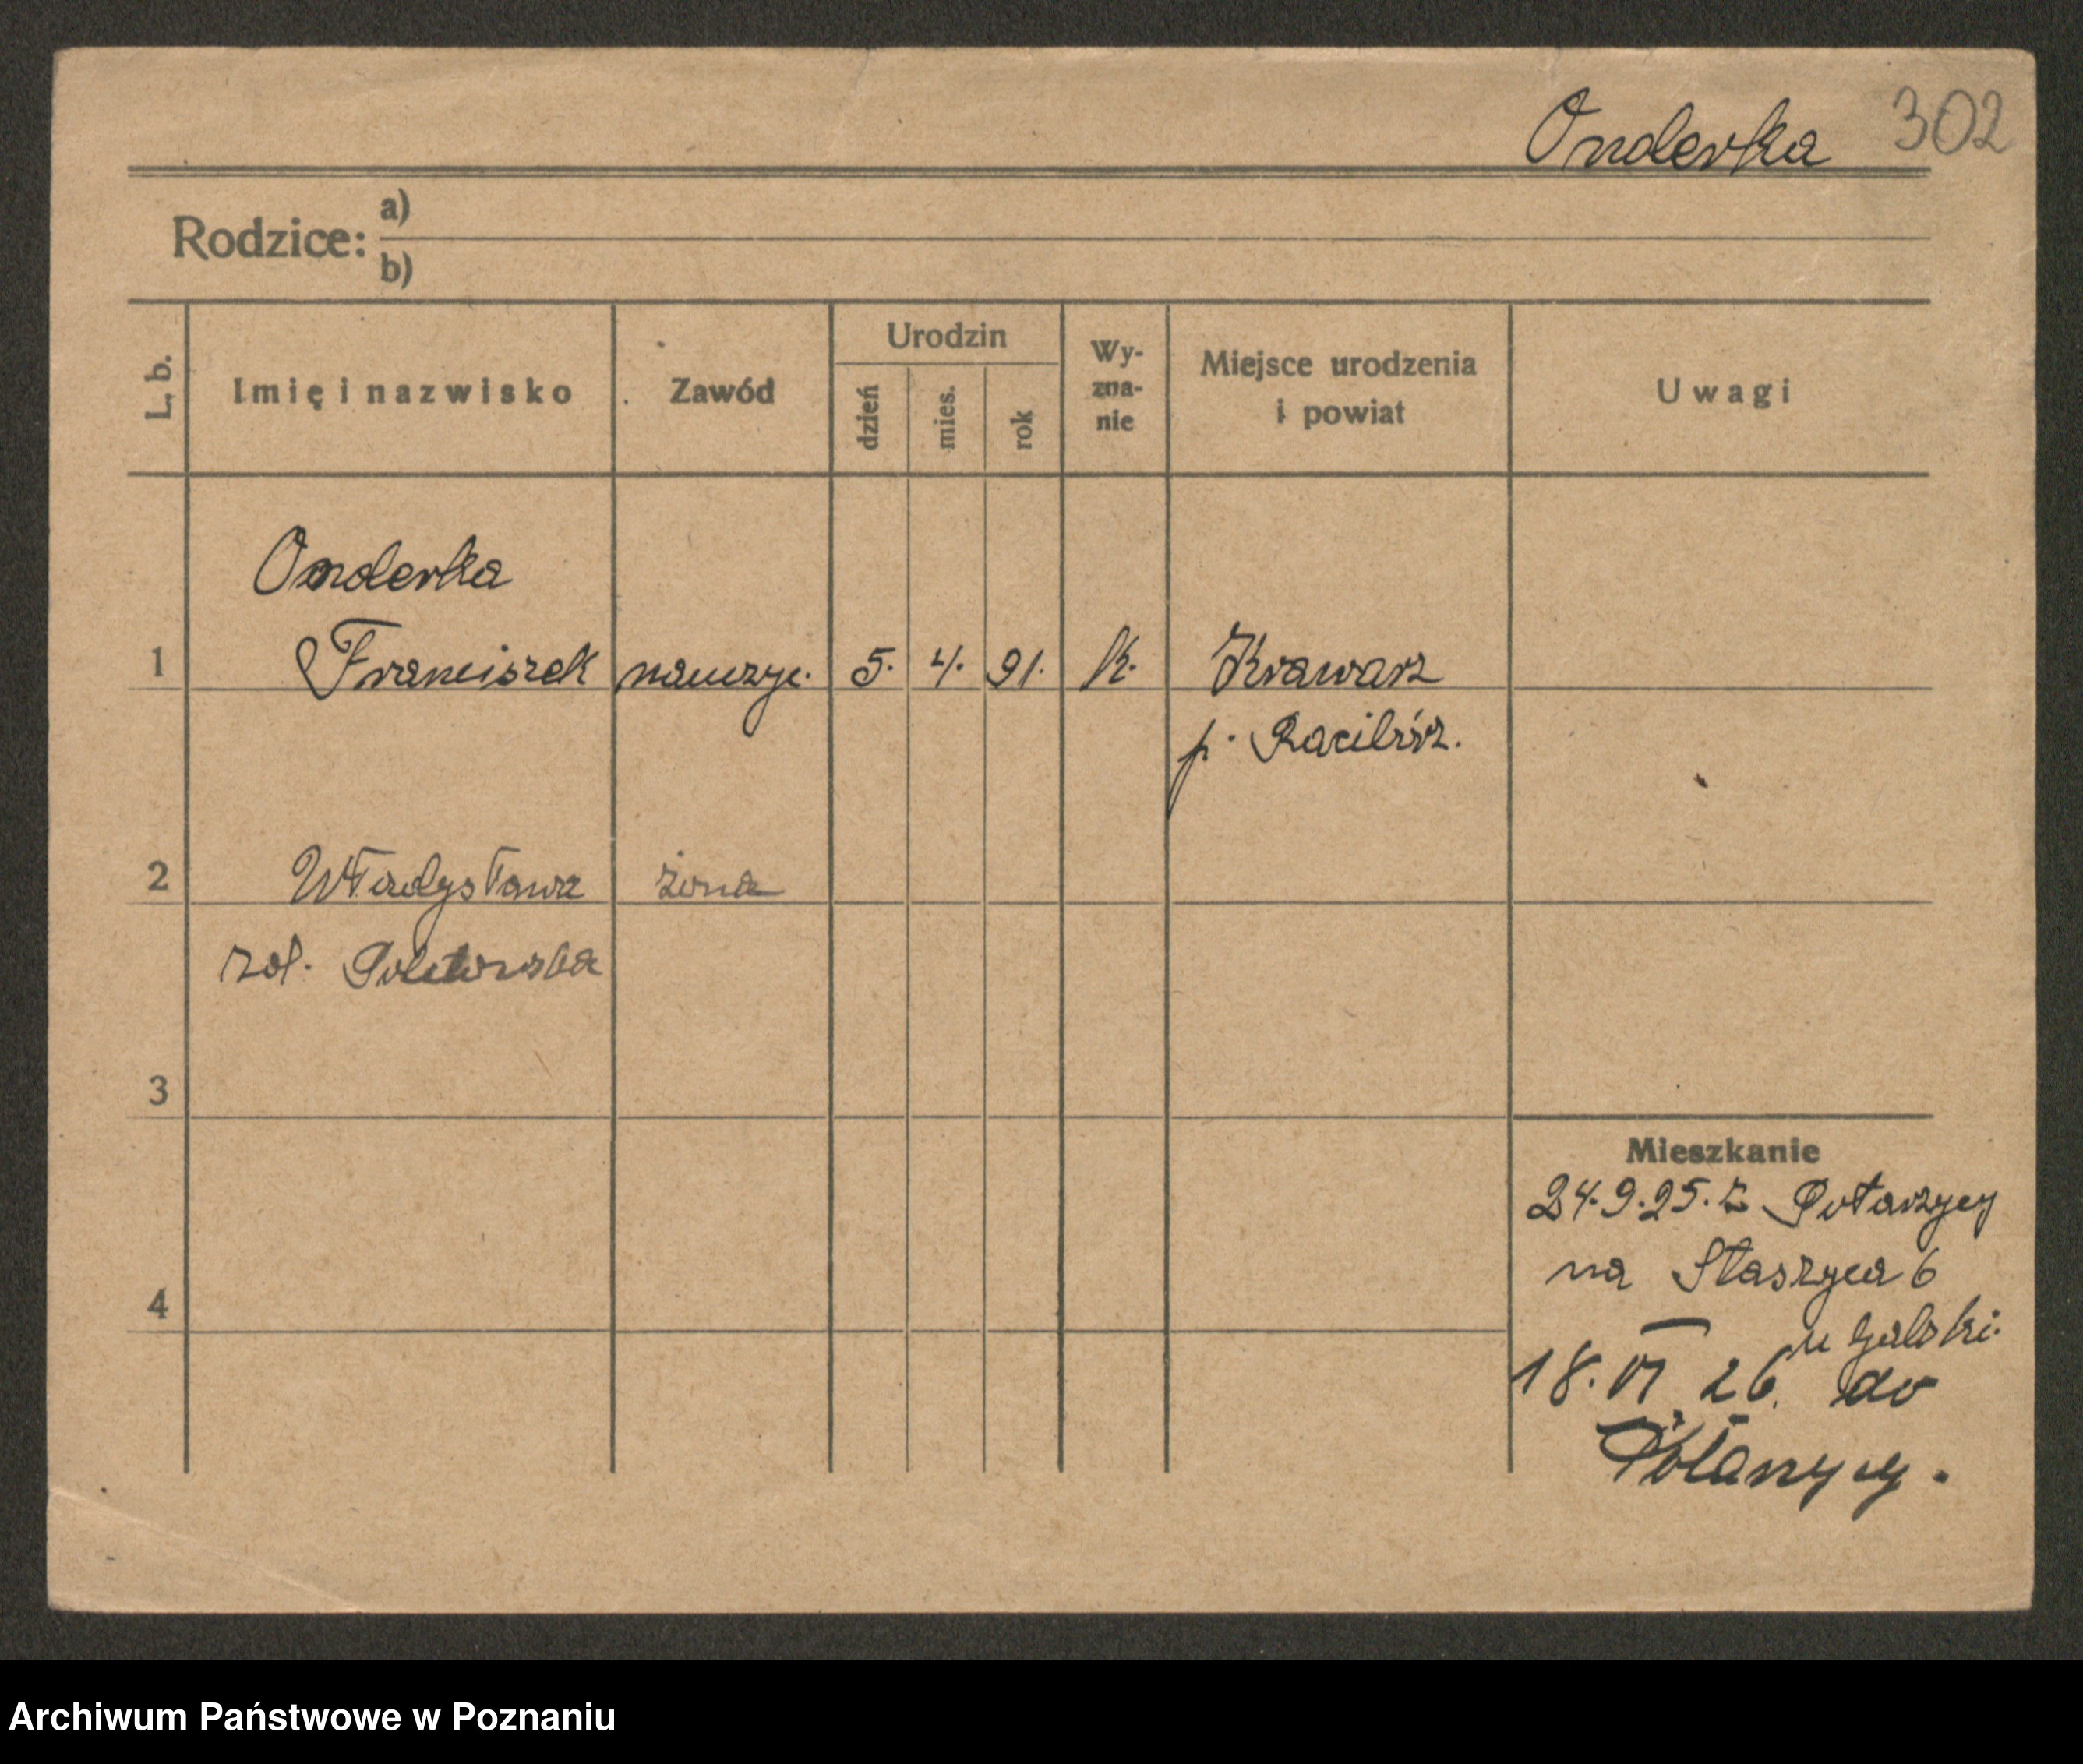 Onderka 302
Rodzice: a)
b)
L, b.
Imię i nazwisko
Zawód
Urodzin
dzień
mies.
rok
Wy-
zna-
nie
Miejsce urodzenia
i powiat
Uwagi
Onderka
1 Franciszek nauczyc. 5. 4. 91. K. Krawarz
p. Racibórz.
2 Władysława żona
rol.
3
4
Mieszkanie
24.9.25. z Potarzycy
na Staszyca 6
u Galski.
18. VI 26. do
Potarzycy.
Archiwum Państwowe w Poznaniu